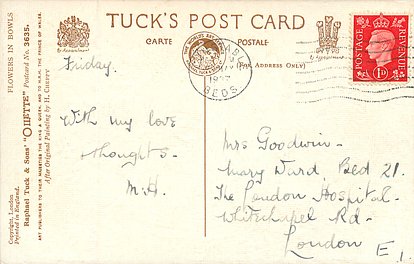 TUCK'S POST CARD
CARTE
POSTALE
(FOR ADDRESS ONLY)
BEDS
POSTAGE
REVENUE
1D
FLOWERS IN BOWLS
Copyright, London
Printed in England.
Raphael Tuck & Sons' "OILETTE" Postcard No. 3635.
After Original Painting by H. CHEFFY
ART PUBLISHERS TO THEIR MAJESTIES THE KING & QUEEN, AND TO H.R.H. THE PRINCE OF WALES.
Friday.
With my love
& thoughts -
M.H.
Mrs Goodwin -
Mary Ward. Bed 21.
The London Hospital -
Whitechapel Rd -
London E1.